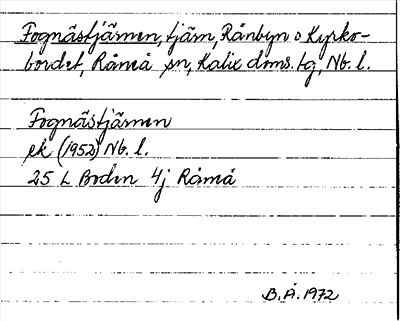 Fognästjärnen, tjärn, Rånbyn o Kyrko-
bordet, Råneå sn, Kalix doms. tg, Nb. l.
Fognästjärnen
ek (1952) Nb. l.
25 L Boden 4j Råneå
B.Å. 1972